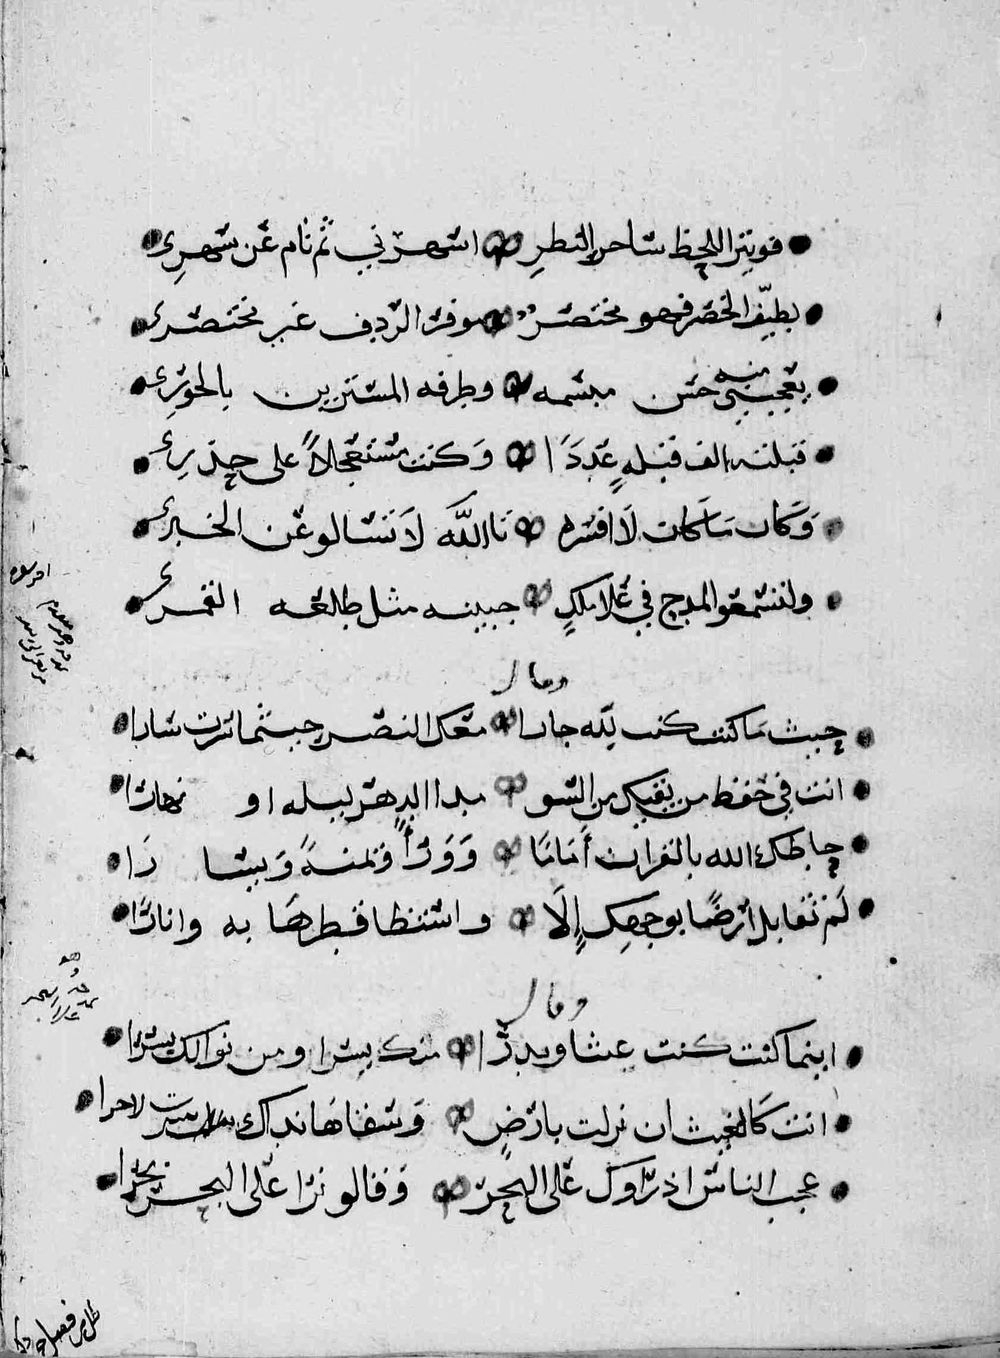 فويتر اللحظ ساحر النظرِ اسهرني ثم نام عن سهرِي
لطيف الخصر فهو مختصرٌ موفر الردف غير مختصرى
يعجبني منه حسن مبسمه وطرفه المستزين بالحورِى
قبلته الف قبلةٍ عددًا وكنت مستعجلاً على حذرى
وكان ما كان لا افسره تاالله لا تسالو عن الخبرى
ولتسمعو المدح في علا ملكٍ جبينه مثل طالعه القمرى
وقال
حيث ما كنت كنت لله جارا معك النصر حيثما سرت سارا
انت في حفظ من يقيك من السو مدا الدهر ليله او نهارًا
حاطك الله بالقران أمامًا وورأً ويمنةً ويسارَا
لم تقابل ارضًا بوجهك إلا واستضا قطرها به وانارًا
وقال
اينما كنت كنت غيثا وبدرًا منك يسرا ومن نوالك يسرًا
انت كالغيث ان نزلت بارضٍ وسقاها نداك صرت لاخرا
عجب الناس اذ راوك على البحر وقالو نرا على البحر بحرا